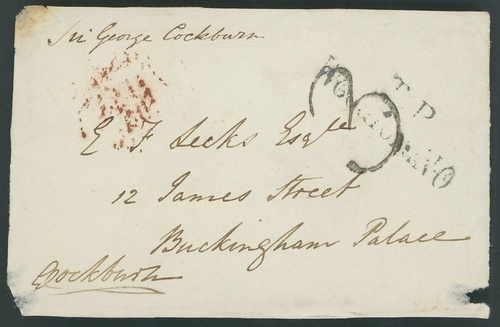 Sir George Cockburn
T.P
3
E. F. Leeks Esqre
12 James Street
Buckingham Palace
GCockburn